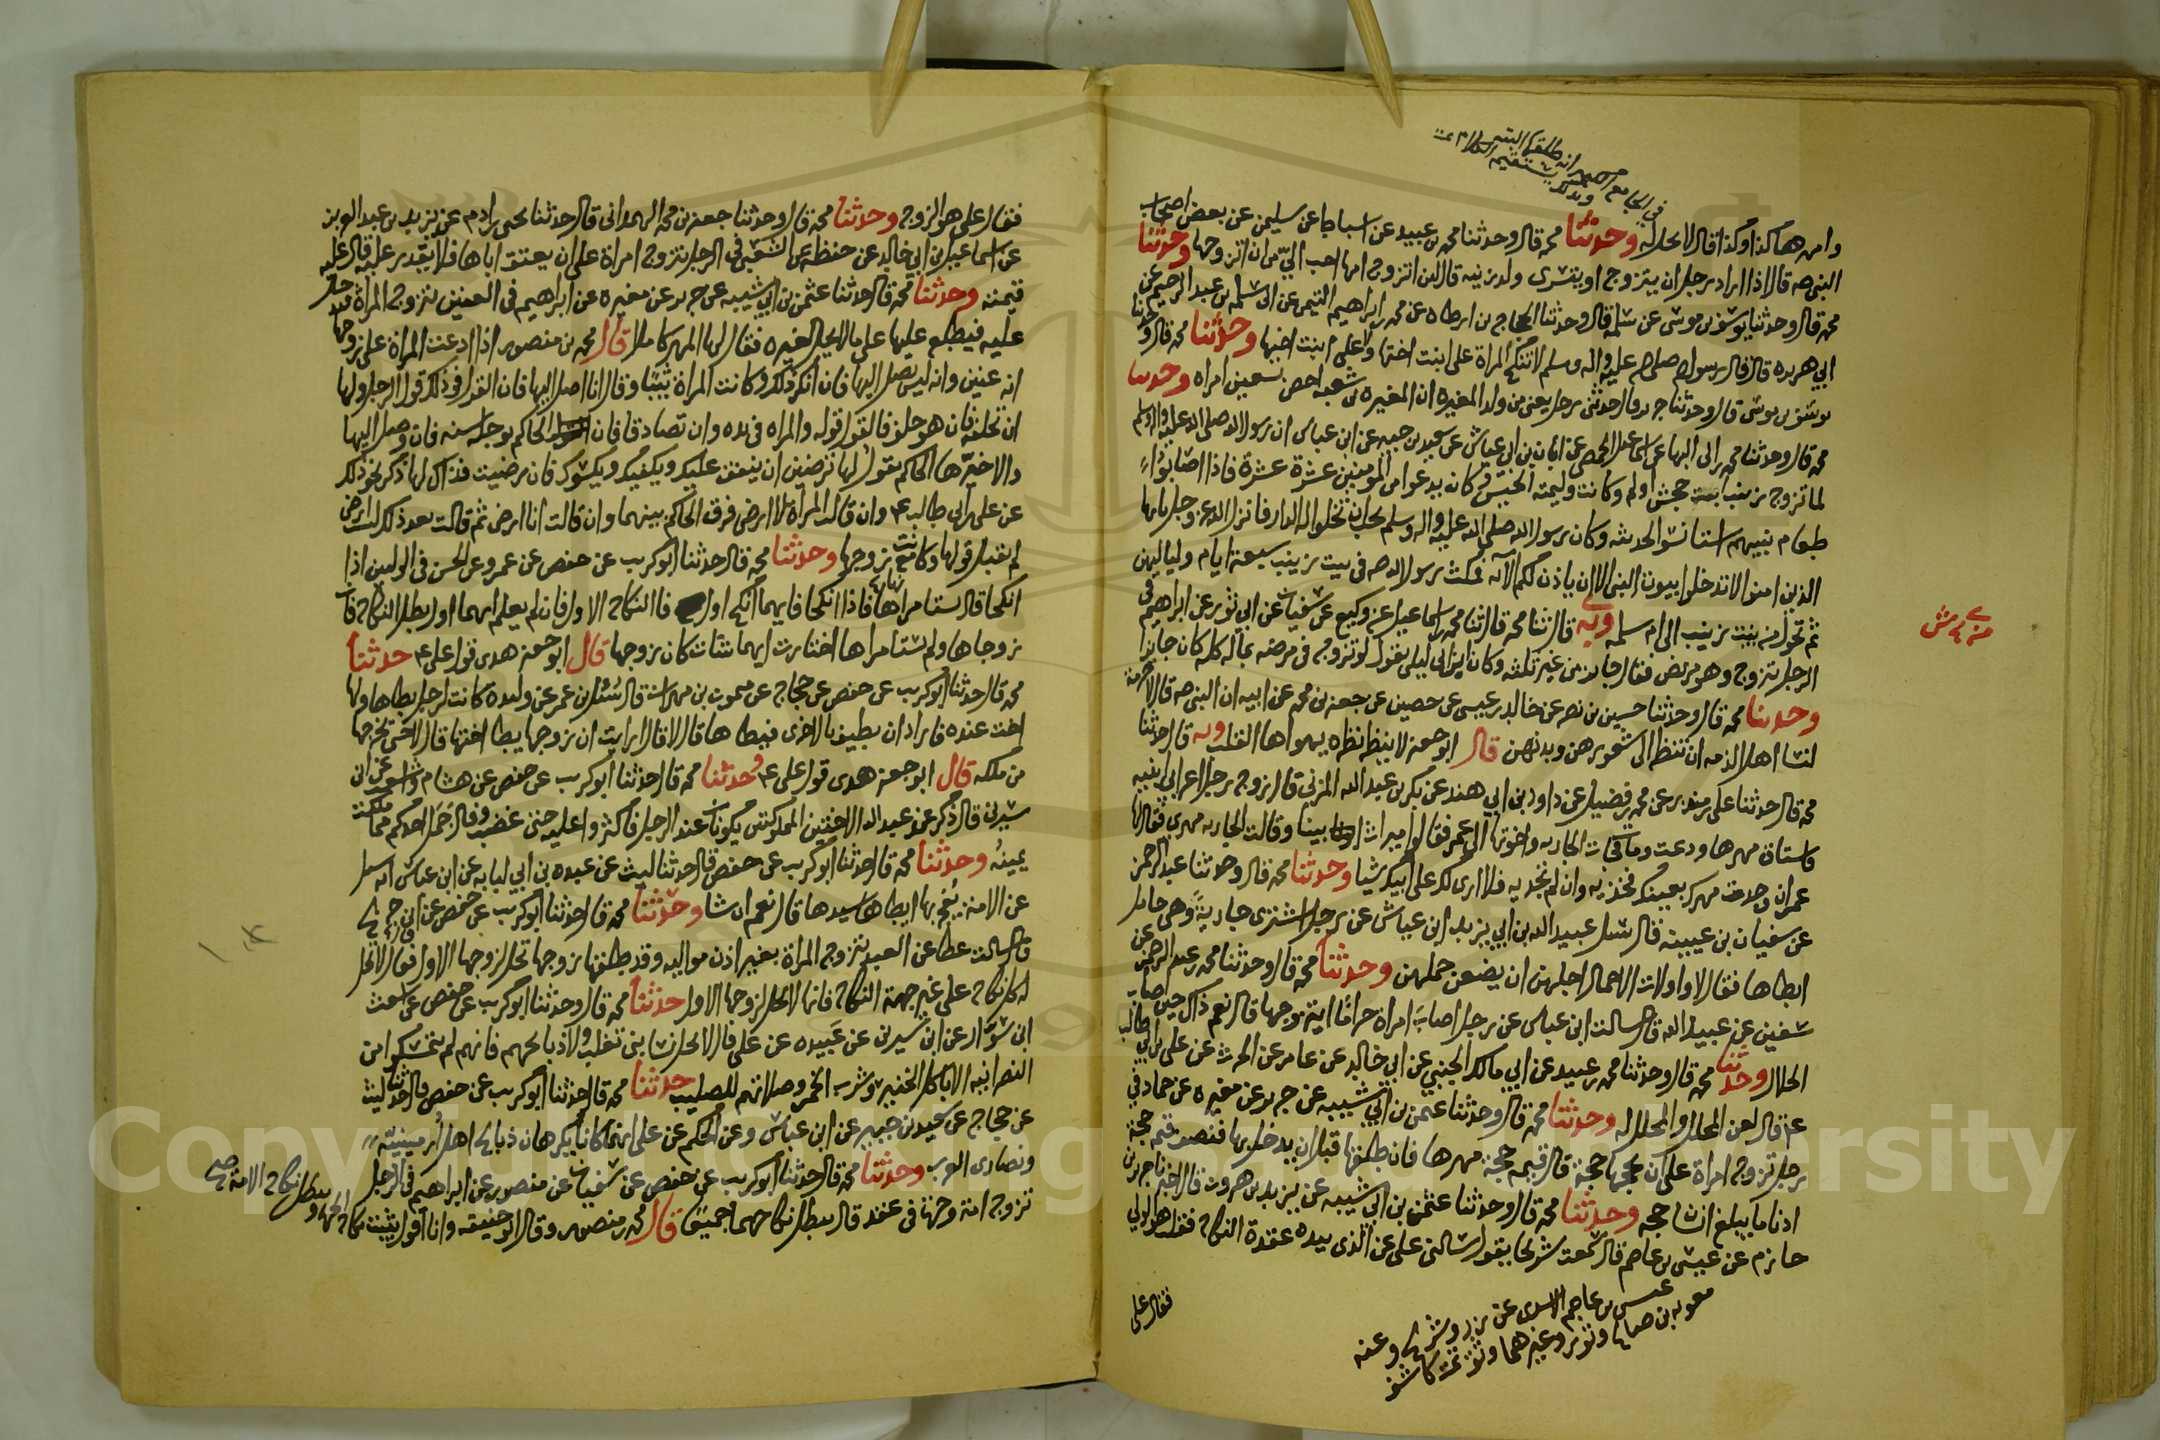 في الجامع الكبير انه طلقها البتة
وبذلك يستقيم الكلام تمت
وامرها كذا وكذا قال لا تحل له وحدثنا محمد قال وحدثنا محمد بن عبيد عن اسباط عن سليمن عن بعض اصحاب
النبي صه قال اذا اراد رجل ان يتزوج او يتسرى ولد زنية قال لان اتزوج امها احب الي من ان اتزوجها وحدثنا
محمد قال وحدثنا يوسف بن موسى عن سلمة قال وحدثنا الحجاج بن ارطاه عن محمد بن ابراهيم التيمي عن ابي سلمة بن عبد الرحمن عن
ابي هريره قال قال رسول الله صلى الله عليه واله وسلم لا تنكح المراة على ابنت اختها ولا على ابنت اخيها وحدثنا محمد قال وحدثنا
يوسف بن موسى قال وحدثنا جرير قال حدثني رجل يعني من ولد المغيره ان المغيره بن شعبه احصن تسعين امراه وحدثنا
محمد قال وحدثنا محمد بن ابي البها عن اسماعيل الحمصي عن ابان بن ابي عياش عن سعيد بن جبير عن ابن عباس ان رسول الله صلى الله عليه واله وسلم
لما تزوج زينب ابنت جحش اولم وكانت وليمته الحيس وكان يدعوا من المومنين عشرة عشرة فاذا اصابوا
طعام نبيهم استانسوا لحديثه وكان رسول الله صلى الله عليه واله وسلم يحب ان يتخلوا له الدار فانزل الله عز وجل يا ايها
الذين امنوا لا تدخلوا بيوت النبي الا ان ياذن لكم الآيه فمكث رسول الله صه في بيت زينب سبعة ايام ولياليهن
ثم تحول من بيت زينب الى ام سلمه وبه قال ثنا محمد قال ثنا محمد بن اسماعيل عن وكيع عن سفيان عن ابي ثور عن ابراهيم في
الرجل يتزوج وهو مريض فقال جايز من غير ثلثه وكان ابن ابي ليلى يقول لو تزوج في مرضه بماله كله كان جايزا
وحدثنا محمد قال وحدثنا حسين بن نصر عن خالد بن عيسى عن حصين عن جعفر بن محمد عن ابيه ان النبي صه قال لا حرمة
لنسا اهل الذمه ان تنظر الى شعورهن ويديهن قال ابو جعفر لا ينظر نظره يهواها القلب وبه قال حدثنا
محمد قال حدثنا علي بن منذر عن محمد بن فضيل عن داود بن ابي هند عن بكر بن عبد الله المزني قال زوج رجل اعرابي ابنيه
فاستاق مهرها ودعت وماتت الجاريه واخوتها الى عمر فقالوا ميراث اختنا بيننا وقالت الجاريه مهري فقال لها
عمر ان وجدت مهرك بعينك فخذيه وان لم تجديه فلا ارى لك على ابيك شيا وحدثنا محمد قال وحدثنا عبد الرحمن
عن سفيان بن عيينه قال سئل عبيد الله بن ابي يزيد ابن عباس عن رجل اشترى جارية وهي حامل
ايطاها فقال لا واولات الاحمال اجلهن ان يضعن حملهن وحدثنا محمد قال وحدثنا محمد بن عبد الرحمن عن
سفين عن عبيد الله قال سالت ابن عباس عن رجل اصاب امراة حراما ايتزوجها قال نعم ذاك حين اصاب
الحلال وحدثنا محمد قال وحدثنا محمد بن عبيد عن ابي مالك الجنبي عن ابي خالد عن عامر عن الحرث عن علي بن ابي طالب
عم قال لعن المحلل والمحلل له وحدثنا محمد قال وحدثنا عثمن بن ابي شيبه عن جرير عن مغيره عن حماد في
رجل تزوج امراة على ان يحجها حجة قال قيمة حجة مهرها فان طلقها قبل ان يدخل بها فنصف قيمة حجة
ادنا ما يبلغ انسان حجه وحدثنا محمد قال وحدثنا عثمن بن ابي شيبه عن يزيد بن هرون قال اخبرنا جرير بن
حازم عن عيسى بن عاصم قال سمعت شريحا يقول سالني علي عن الذي بيده عقدة النكاح فقلت هو الولي
عيسى بن عاصم الاسدي عن زر وشريح وعنه
معويه بن صالح وثور وغيرهما وثق تمت كاشف
فقال علي
فقال علي هو الزوج وحدثنا محمد قال وحدثنا جعفر بن محمد الهمداني قال حدثنا يحيى بن ادم عن يزيد بن عبد العزيز
عن اسماعيل بن ابي خالد عن حنظله عن الشعبي في الرجل يتزوج امراة على ان يعتق اباها فلا يقدر عليه قال عليه
قيمته وحدثنا محمد قال حدثنا عثمن بن ابي شيبه عن جرير عن مغيره عن ابراهيم في العنين يتزوج المراة قد دخل
عليه فيطلع عليها على ما لا يحل لغيره فقال لها المهر كاملا قال محمد بن منصور اذا ادعت المراة على زوجها
انه عنين وانه ليس يصل اليها فان انكر ذلك وكانت المراة ثيبا وقال انا اصل اليها فان القول في ذلك قول الرجل ولها
ان تحلفه فان هو حلف فالقول قوله والمراه في يده وان تصادقا فان الحاكم يوجله سنه فان وصل اليها
والا خيرها الحاكم يقول لها ترضين ان ينفق عليك ويكفيك ويكسوك فان رضيت فذاك لها ذكر نحو ذلك
عن علي بن ابي طالب عم وان قالت المراة لا ارضى فرق الحاكم بينهما وان قالت انا ارضى ثم قالت بعد ذلك لست ارضى
لم يقبل قولها وكانت مع زوجها وحدثنا محمد قال حدثنا ابو كريب عن حفص عن عمرو عن الحسن في الوليين اذا
انكحا قال يستامرانها فاذا انكحا فايهما انكح اول فالنكاح الاول فان لم يعلم ايهما اول بطل النكاح فان
زوجاها ولم يستامراها اختارت ايهما شات كان زوجها قال ابو جعفر هذى قول علي عم حدثنا
محمد قال حدثنا ابو كريب عن حفص عن حجاج عن ميمون بن مهران قال سئل ابن عمر عن وليدة كانت لرجل يطاها ولها
اخت عنده فاراد ان يطيف بالاخرى فيطاها قال لا قال ارايت ان زوجها يطا اختها قال لا حتى يخرجها
من ملكه قال ابو جعفر هذى قول علي عم وحدثنا محمد قال حدثنا ابو كريب عن حفص عن هشام واشعث عن ابن
سيرين قال ذكر عند عبد الله الاختين المملوكتين يكونان عند الرجل فاكثروا عليه حتى غضب وقال جمل احدكم مما ملكت
يمينه وحدثنا محمد قال حدثنا ابو كريب عن حفص قال حدثنا ليث عن عبده بن ابي لبابه عن ابن عباس انه سئل
عن الامة يفجر بها ايطاها سيدها قال نعم ان شا وحدثنا محمد قال حدثنا ابو كريب عن حفص عن ابن جريج
قال سالت عطا عن العبد يتزوج المراة بغير اذن مواليه وقد طلقها زوجها تحل لزوجها الاول فقال لا تحل
له كل نكاح على غير جهة النكاح فانها لا تحل لزوجها الاول حدثنا محمد قال وحدثنا ابو كريب عن حفص عن اشعث
ابن سوار عن ابن سيرين عن عبيده عن علي قال لا تحل نسا بني تغلب ولا ذبايحهم فانهم لم يتمسكوا من
النصرانيه الا باكل الخنزير وشرب الخمر وصلاتهم للصليب حدثنا محمد قال حدثنا ابو كريب عن حفص قال حدثنا ليث
عن حجاج عن سعيد بن جبير عن ابن عباس وعن الحكم عن علي انهما كانا يكرهان ذبايح اهل ارمينيه
ونصارى العرب وحدثنا محمد قال حدثنا ابو كريب عن حفص عن سفيان عن منصور عن ابراهيم في الرجل
تزوج امة وحرة في عقد قال يبطل نكاحهما جميعا قال محمد بن منصور وقال ابو حنيفه وانا اقول يثبت نكاح الحره ويبطل نكاح الامة صح